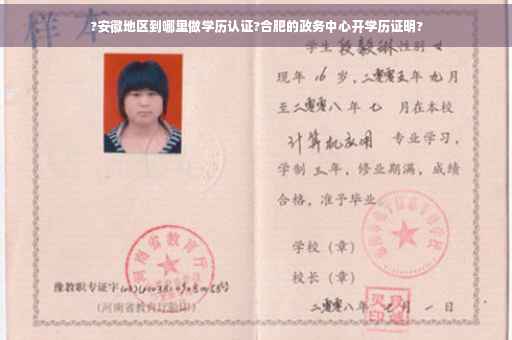 ?安徽地区到哪里做学历认证?合肥的政务中心开学历证明?
样本
学生段毅琳性别女
现年16岁，二零零五年九月
至二零零八年七月在本校
计算机应用 专业学习，
学制三年，修业期满，成绩
合格，准予毕业。
学校（章）
校长（章）
二零零八年 月一日
河南省教育厅
豫教职专证字
(河南省教育厅验印)